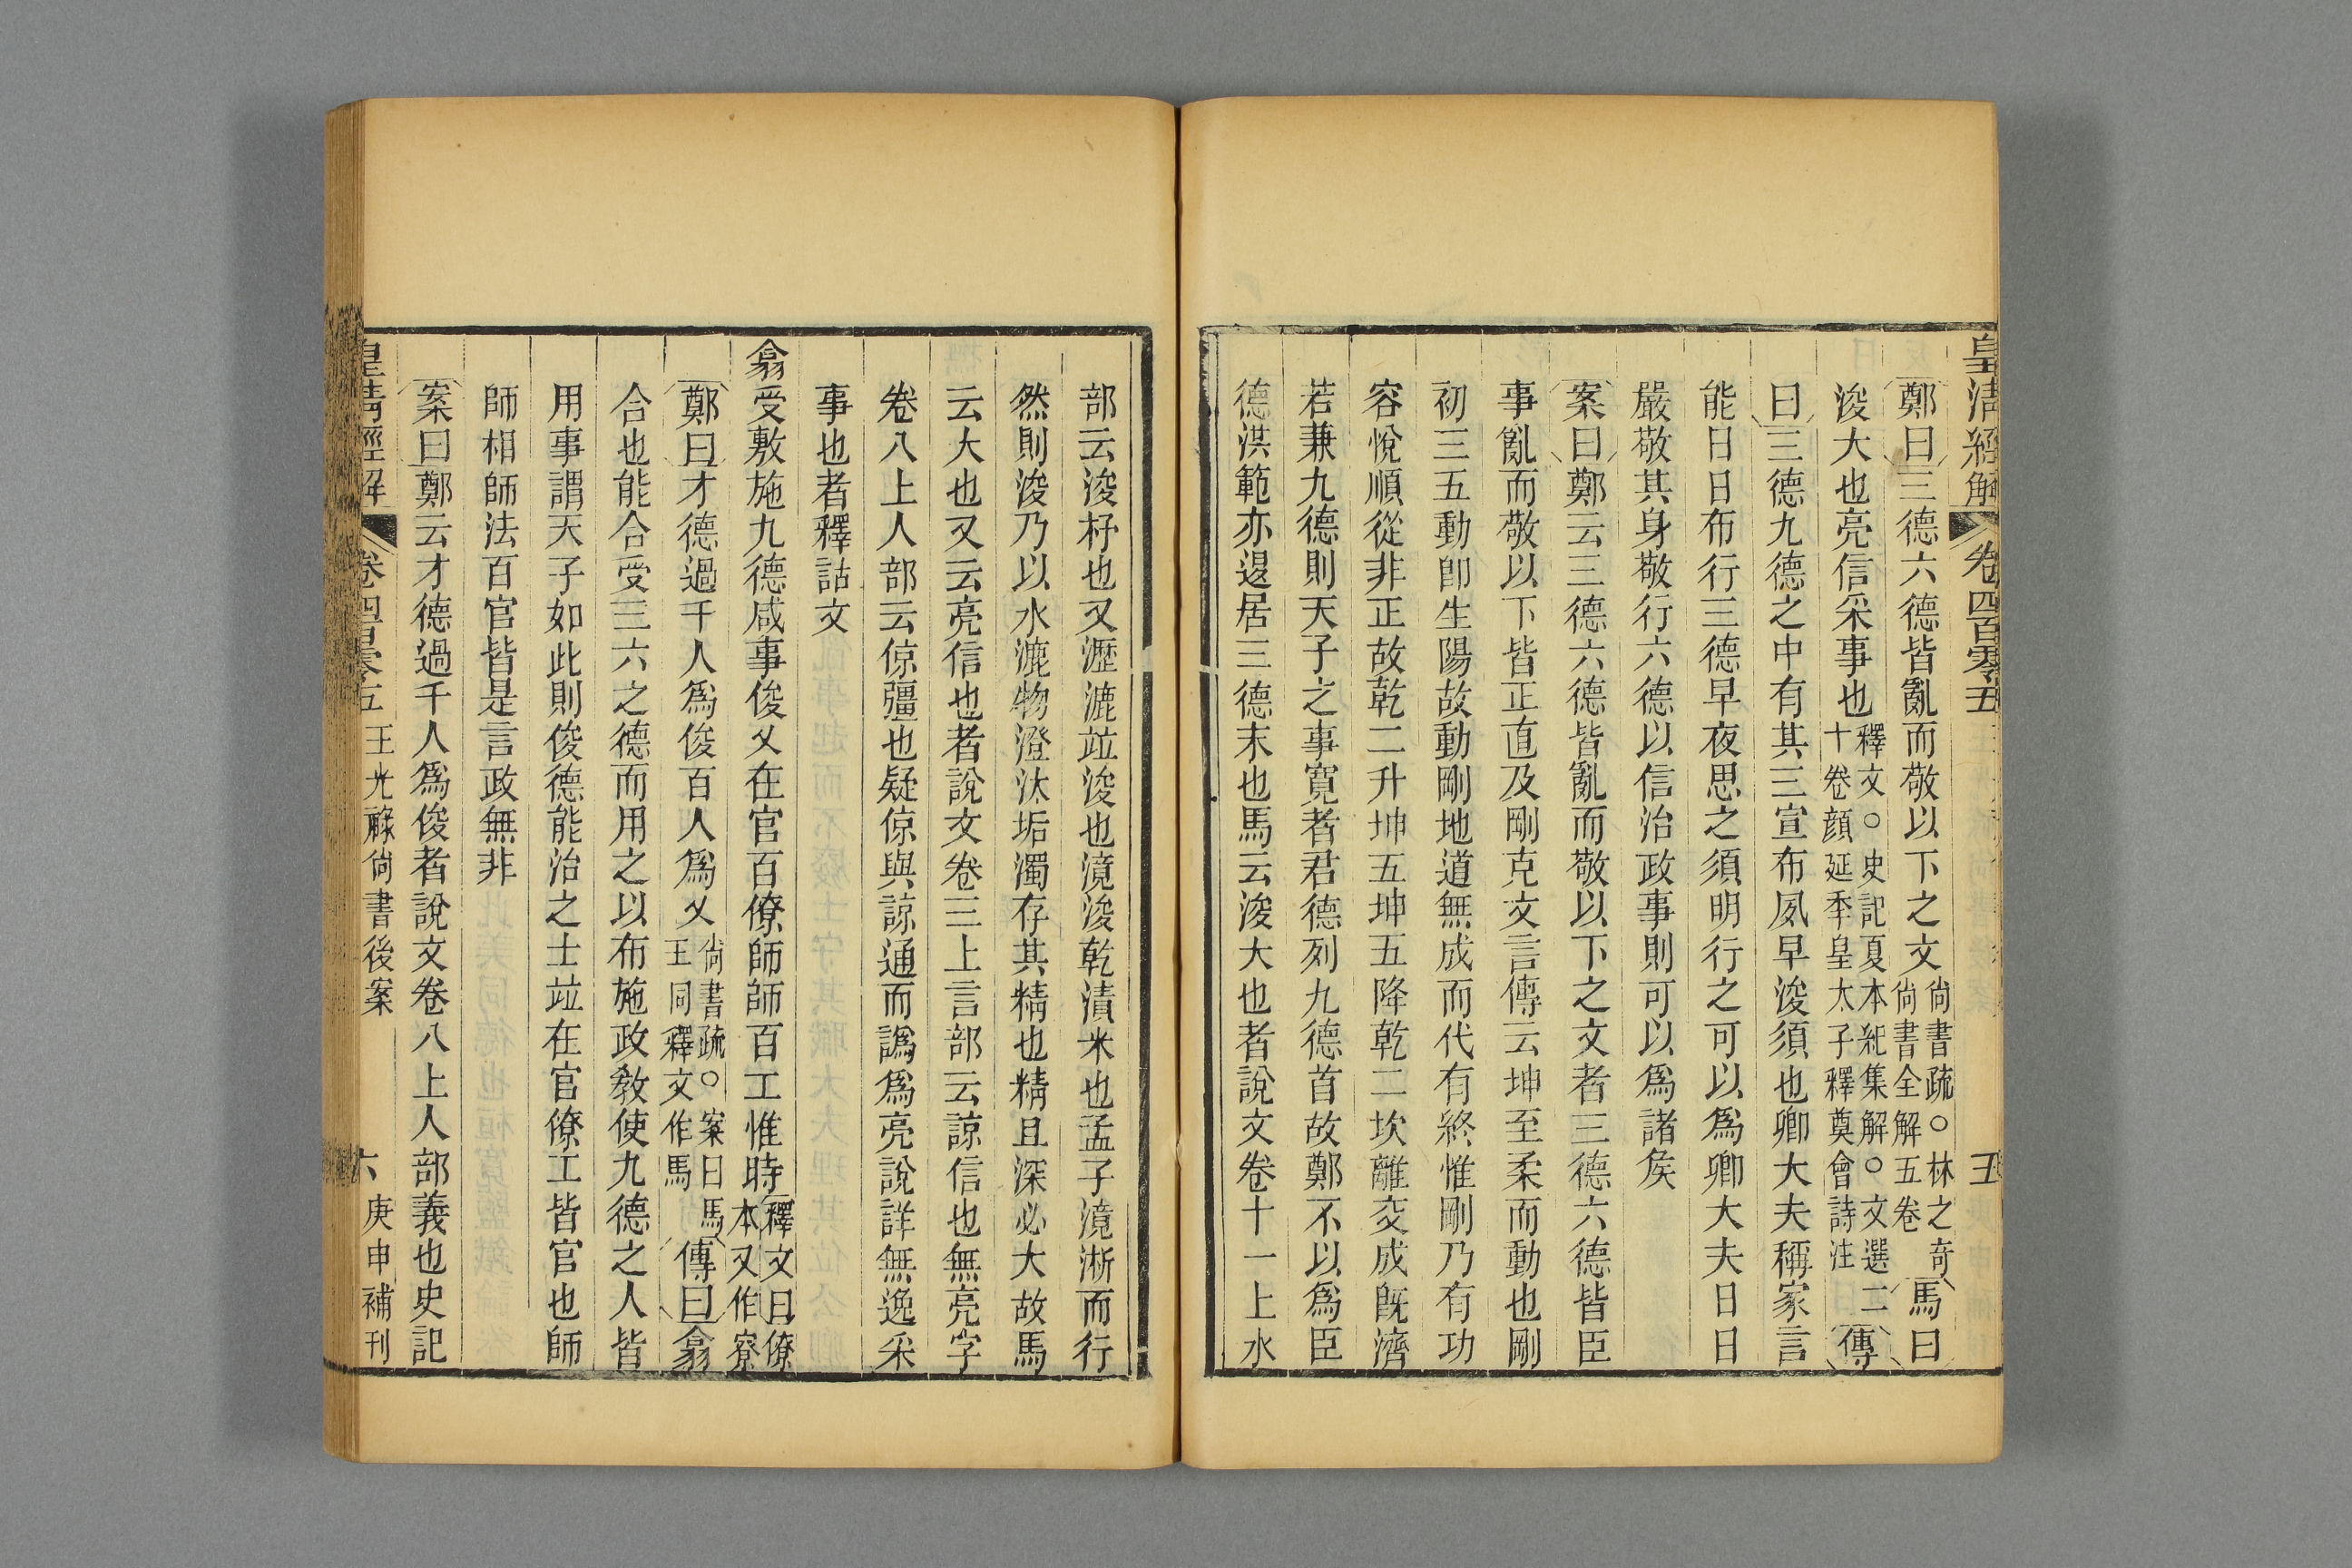 皇清經解 卷四百零五 五
鄭曰三德六德皆亂而敬以下之文尚書疏○林之奇尚書全解五卷馬曰
浚大也亮信采事也釋文○史記夏本紀集解○文選二十卷顔延年皇太子釋奠會詩注傳
曰三德九德之中有其三宣布夙早浚須也卿大夫稱家言
能日日布行三德早夜思之須明行之可以爲卿大夫日日
嚴敬其身敬行六德以信治政事則可以爲諸矦
案曰鄭云三德六德皆亂而敬以下之文者三德六德皆臣
事亂而敬以下皆正直及剛克文言傳云坤至柔而動也剛
初三五動卽生陽故動剛地道無成而代有終惟剛乃有功
容悅順從非正故乾二升坤五坤五降乾二坎離交成旣濟
若兼九德則天子之事寛者君德列九德首故鄭不以爲臣
德洪範亦退居三德末也馬云浚大也者說文卷十一上水
部云浚杼也又瀝漉竝浚也滰浚乾漬米也孟子滰淅而行
然則浚乃以水漉物澄汰垢濁存其精也精且深必大故馬
云大也又云亮信也者說文卷三上言部云諒信也無亮字
卷八上人部云倞彊也疑倞與諒通而譌爲亮說詳無逸采
事也者釋詁文
翕受敷施九德咸事俊乂在官百僚師師百工惟時釋文曰僚本又作寮
鄭曰才德過千人爲俊百人爲乂尚書疏○案曰馬王同釋文作馬傳曰翕
合也能合受三六之德而用之以布施政敎使九德之人皆
用事謂天子如此則俊德能治之士竝在官僚工皆官也師
師相師法百官皆是言政無非
案曰鄭云才德過千人爲俊者說文卷八上人部義也史記
皇清經解 卷四百零五 王光祿尚書後案 六 庚申補刊